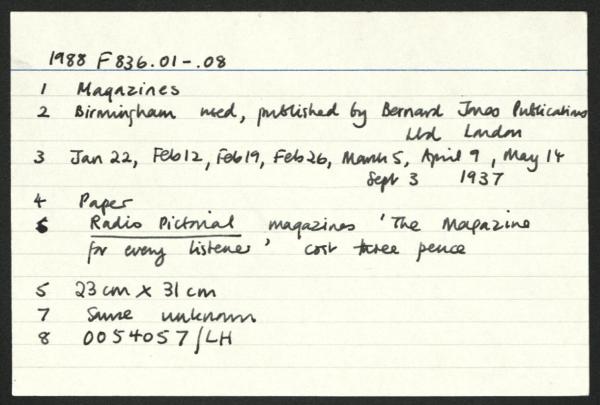 1988 F836.01-.08
1 Magazines
2 Birmingham used, published by Bernard Jones Publications
Ltd London
3 Jan 22, Feb 12, Feb 19, Feb 26, March 5, April 9, May 14
Sept 3 1937
4 Paper
5 Radio Pictorial magazines 'The Magazine
for every listener' cost three pence
5 23 cm x 31 cm
7 Some unknown
8 0054057/LH